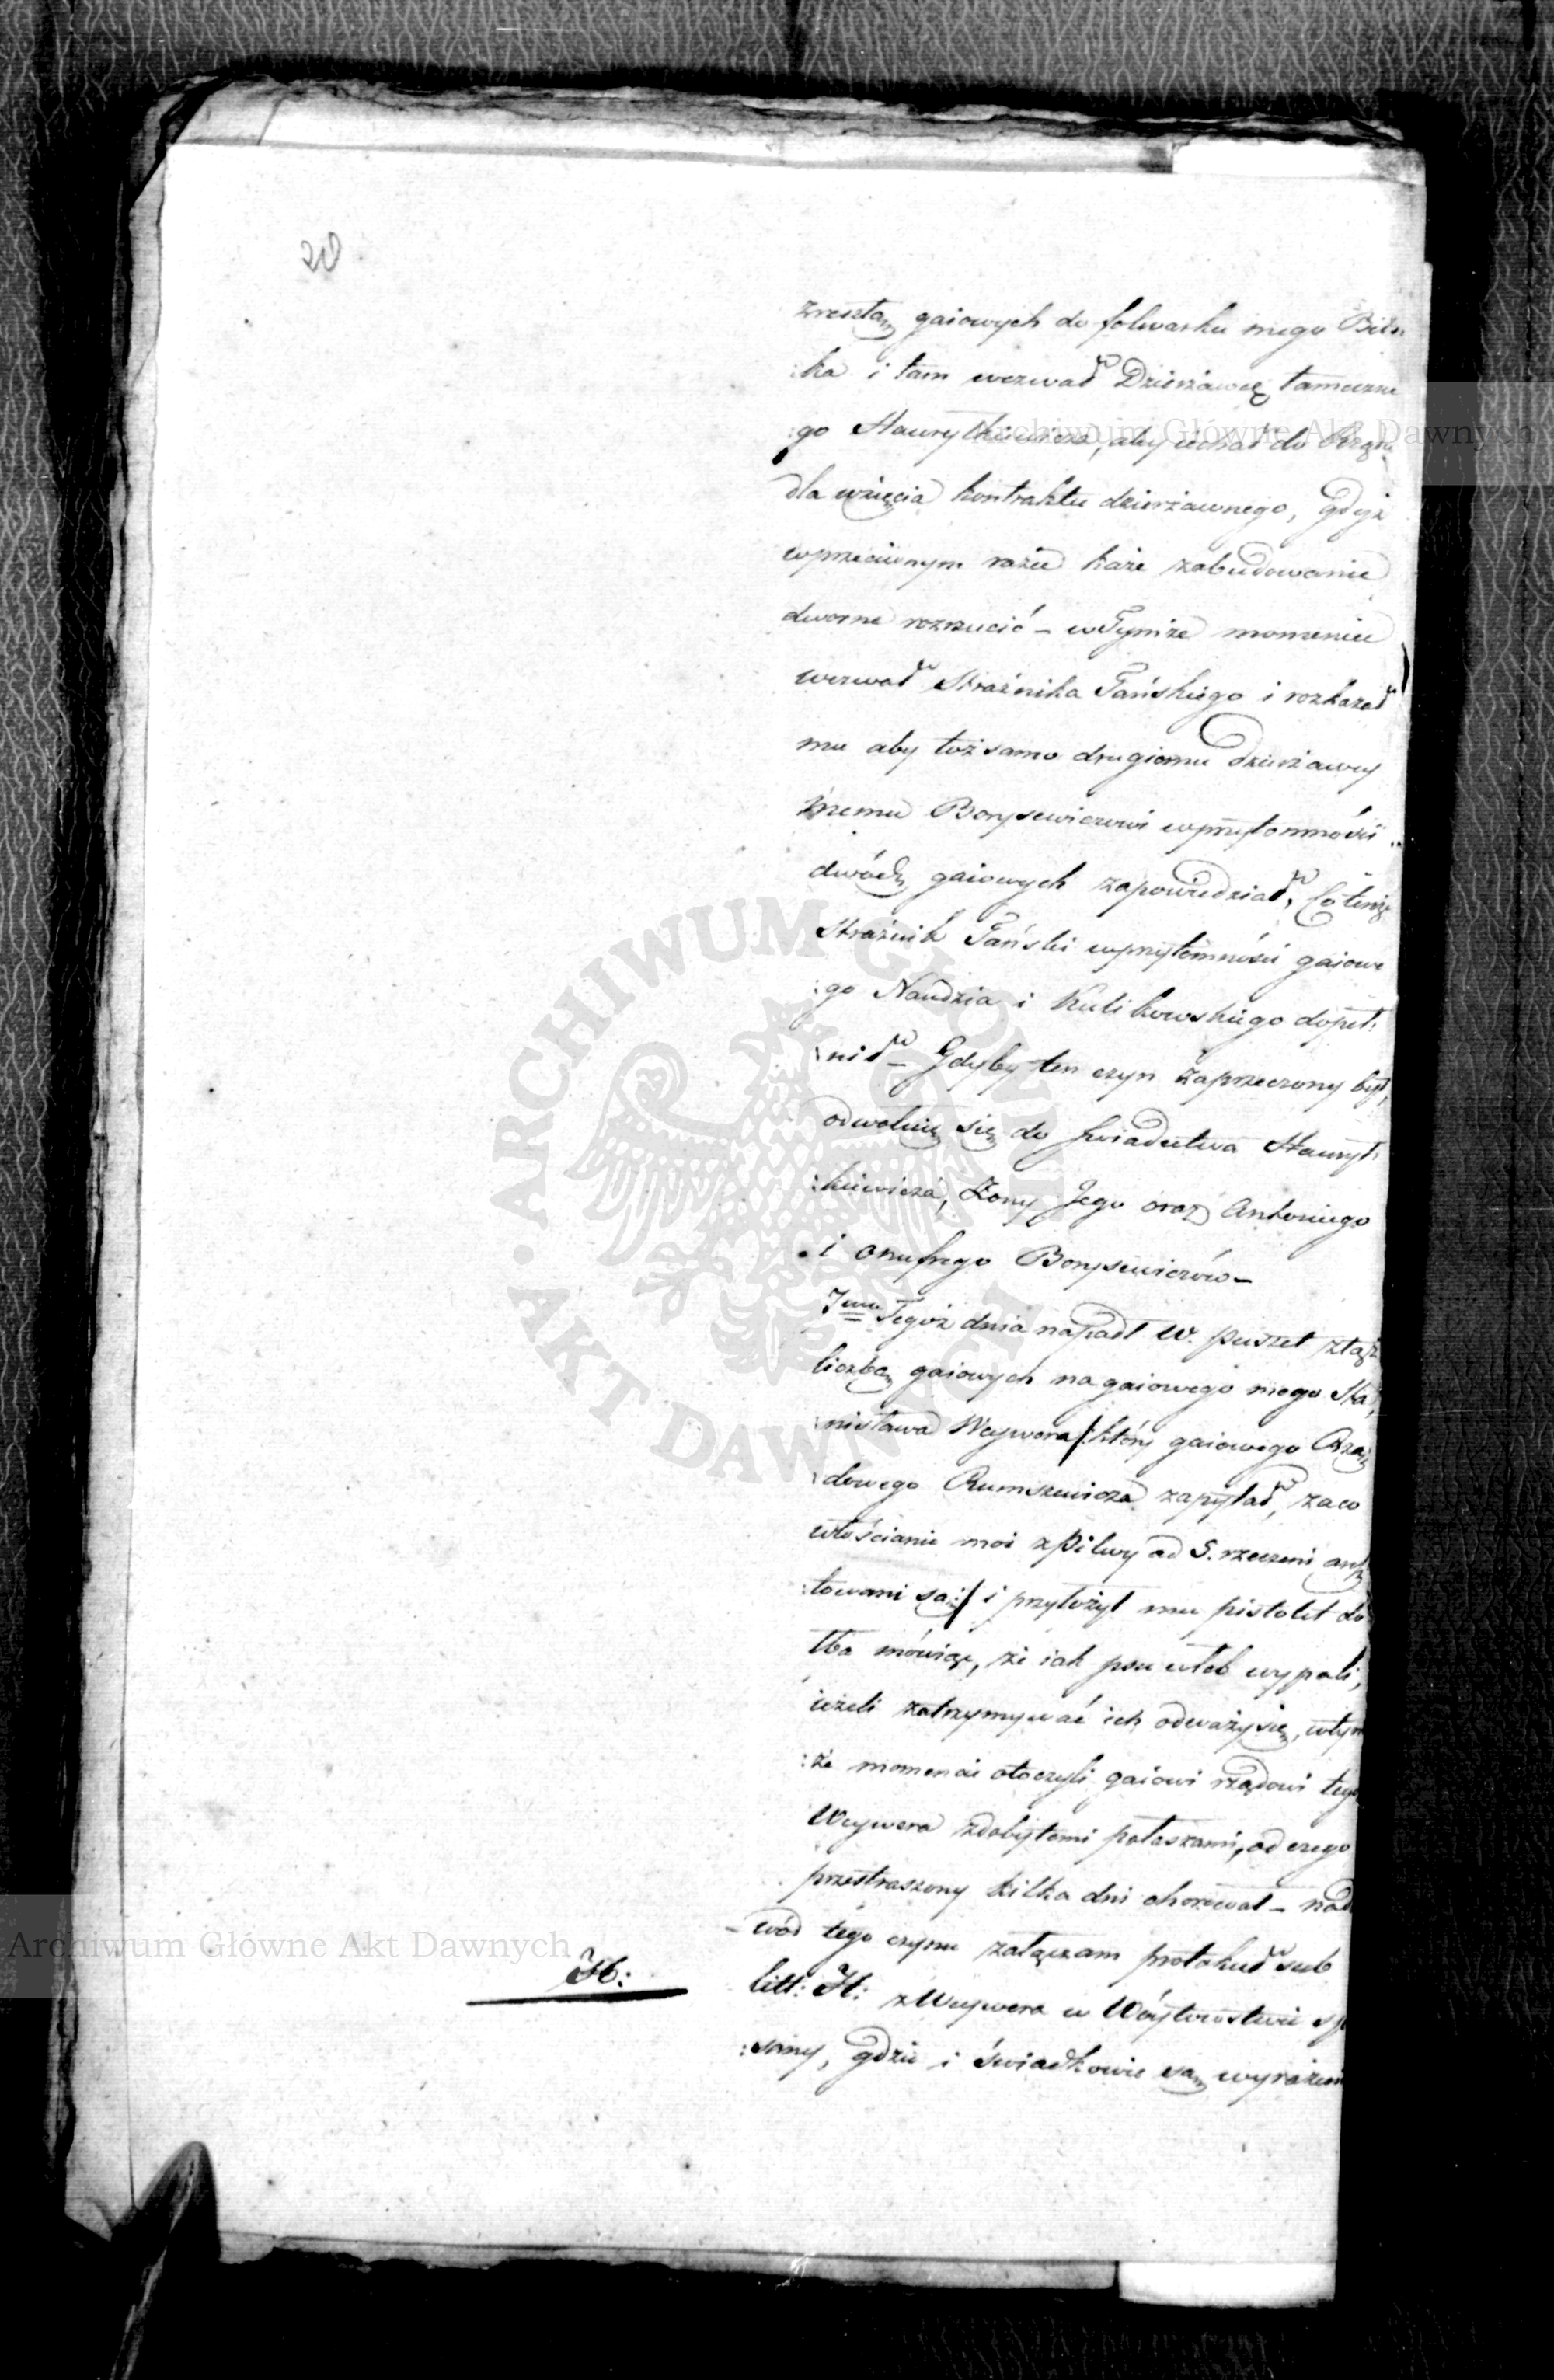 20
zresztą gaiowych do folwarku mego Bitn
:ka i tam wezwał Dzierżawcę tameczne
:go Hawrylkiewicza, aby iechał do
dla wzięcia kontraktu dzierżawnego, gdyż
wprzeciwnym razie każe zabudowanie
dworne rozrzucić – wTymże momencie
wezwał Strażnika Tańskiego i rozkazał
mu aby toż samo drugiemu dzierżawcy
memu Borysewiczowi wprzytomności
dwóch gaiowych zapowiedział, Co tenże
Strażnik Tański wprzytomności gaiowe
:go Naudzia i Kulikowskiego dopeł:
:nił – Gdyby ten czyn zaprzeczony był,
odwołuię się do świadectwa Hawryl:
:kiewicza, Żony Jego oraz Antoniego
i Onufrego Borysewiczów –
7mo Tegoż dnia napadł W. Puszet ztąż
liczbą gaiowych na gaiowego mego Sta
:nisława Weywera /: który gaiowego Rzą
:dowego Rumszewicza zapytał, zaco
włościanie moi zPilwy ad 5. rzeczeni aresz
:towani są :/ i przyłożył mu pistolet do
łba mówiąc, że iak psu włeb wypali,
ieżeli zatrzymywać ich odważy się, wtym
:że momencie otoczyli gaiowi rządowi tego
Weywera zdobytemi pałaszami, od czego
przestraszony kilka dni chorował – nado
–wód tego czynu załączam protokuł sub
H:
litt: H: zWeywera w Wóytowstwie sp
:sany, gdzie i świadkowie są wyrażeni
Archiwum Główne Akt Dawnych
Archiwum Główne Akt Dawnych
ARCHIWUM GŁÓWNE
AKT DAWNYCH